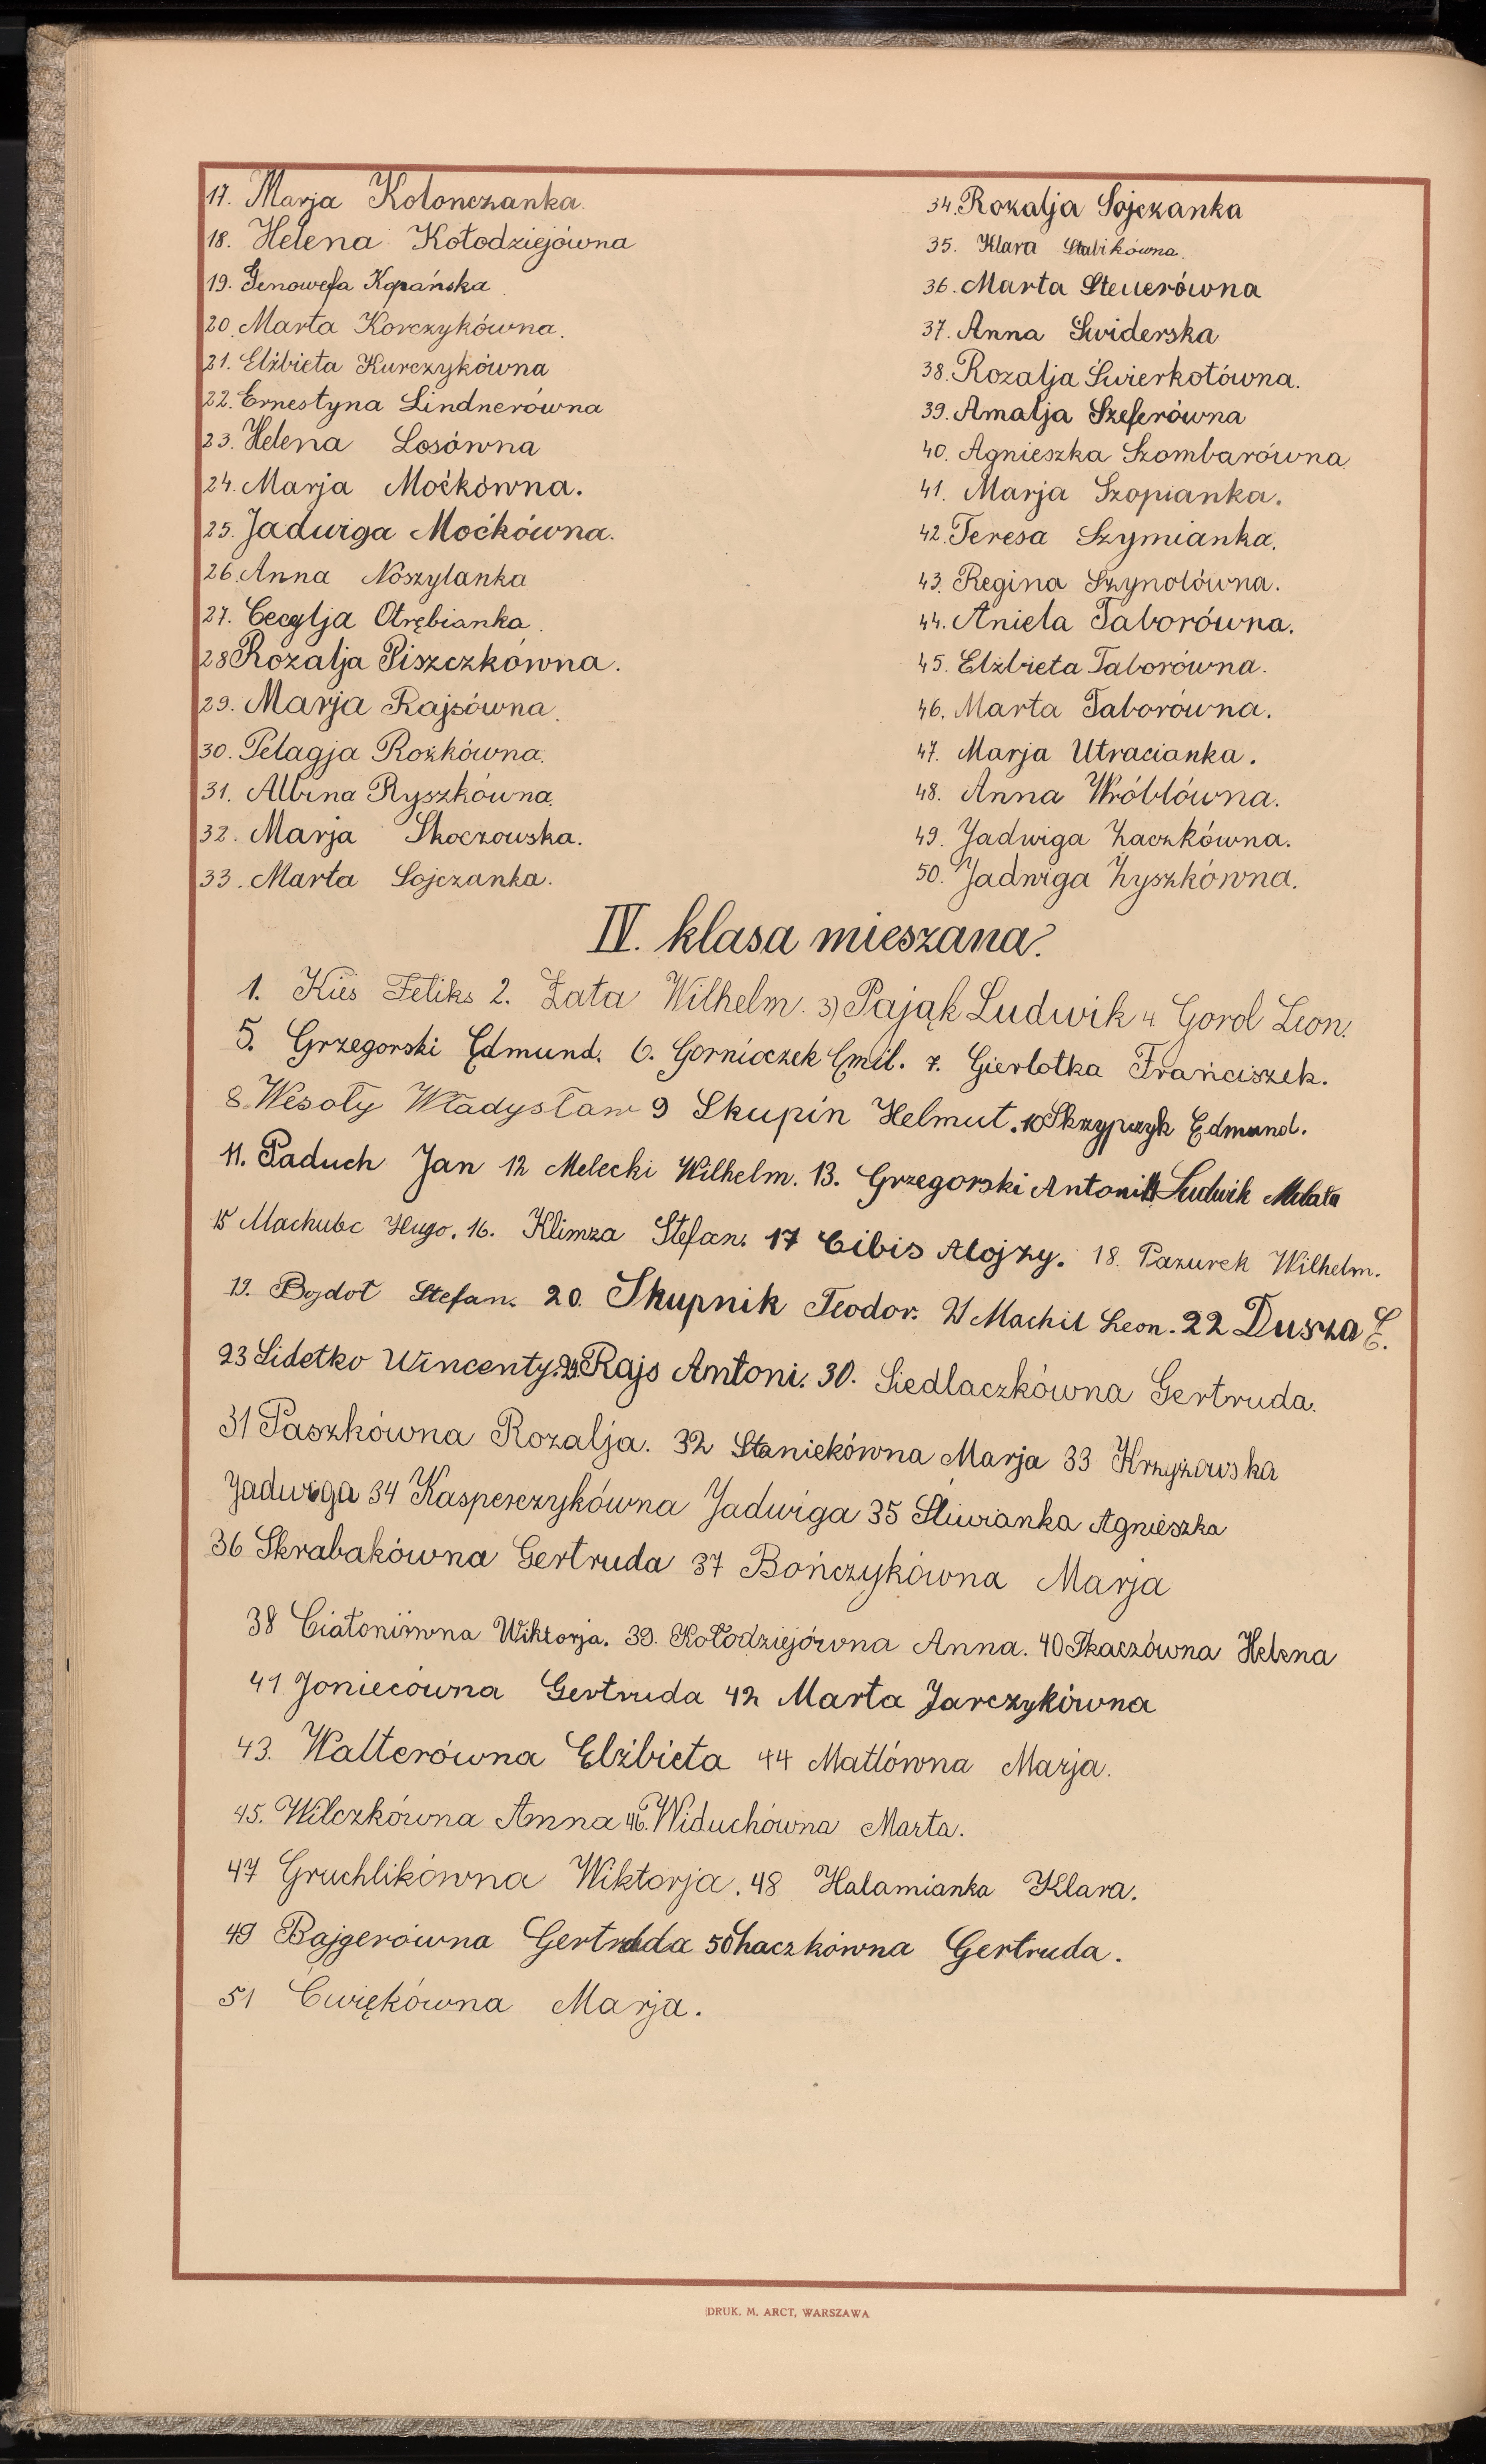 17. Marja Kolonczanka.
18. Helena Kołodziejówna
19. Genowefa Kopańska.
20. Marta Korczykówna.
21. Elżbieta Kurczykówna
22. Ernestyna Lindnerówna
23. Helena Losówna
24. Marja Moćkówna.
25. Jadwiga Moćkówna.
26. Anna Noszylanka
27. Cecylja Otrębianka.
28 Rozalja Piszczkówna.
29. Marja Rajsówna.
30. Pelagja Rożkówna.
31. Albina Ryszkówna.
32. Marja Skoczowska.
33. Marta Sojczanka.
34. Rozalja Sojczanka
35. Klara Stabikówna.
36. Marta Steuerówna
37. Anna Swiderska
38. Rozalja Świerkotówna.
39. Amalja Szeferówna
40. Agnieszka Szombarówna.
41. Marja Szopianka.
42. Teresa Szymianka.
43. Regina Szynolówna.
44. Aniela Taborówna.
45. Elżbieta Taborówna.
46. Marta Taborówna.
47. Marja Utracianka.
48. Anna Wróblówna.
49. Jadwiga Żaczkówna.
50. Jadwiga Żyszkówna.
IV. klasa mieszana.
1. Kiś Feliks 2. Zata Wilhelm. 3) Pająk Ludwik 4. Gorol Leon.
5. Grzegorski Edmund. 6. Gornioczek Emil. 7. Gierlotka Franciszek.
8. Wesoły Władysław 9 Skupin Helmut. 10 Skrzypczyk Edmund.
11. Paduch Jan 12 Melecki Wilhelm. 13. Grzegorski Antoni 14 Ludwik Molata
15 Machulec Hugo. 16. Klimza Stefan. 17 Cibis Alojzy. 18. Pazurek Wilhelm.
19. Bojdoł Stefan. 20. Skupnik Teodor. 21 Machil Leon. 22 Dusza E.
23 Lidetko Wincenty. 29. Rajs Antoni. 30. Siedlaczkówna Gertruda.
31 Paszkówna Rozalja. 32 Staniekówna Marja 33 Krzyżowska
Jadwiga 34 Kasperczykówna Jadwiga 35 Śliwianka Agnieszka
36 Skrabakówna Gertruda 37 Bończykówna Marja
38 Ciatoniówna Wiktorja. 39. Kołodziejówna Anna. 40 Tkaczówna Helena
41 Joniecówna Gertruda 42 Marta Jarczykówna
43. Walterówna Elżbieta 44 Matlówna Marja.
45. Wilczkówna Anna 46. Widuchówna Marta.
47 Gruchlikówna Wiktorja. 48 Halamianka Klara.
49 Bajgerówna Gertruda 50 Żaczkówna Gertruda.
51 Ćwiękówna Marja.
DRUK. M. ARCT, WARSZAWA